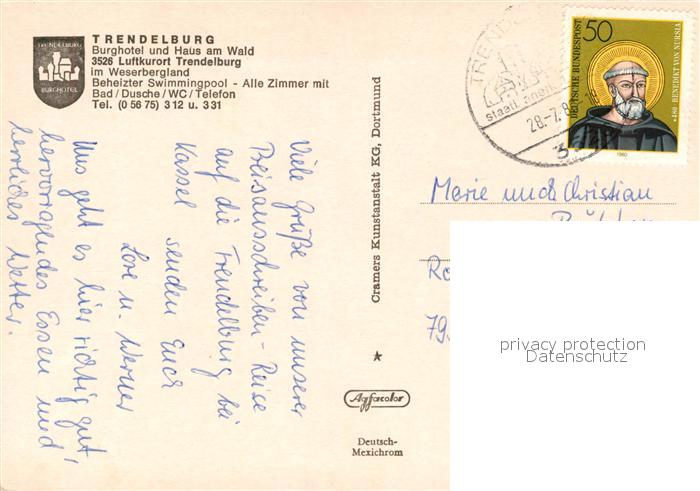 TRENDELBURG
Burghotel und Haus am Wald
3526 Luftkurort Trendelburg
im Weserbergland
Beheizter Swimmingpool - Alle Zimmer mit
Bad/Dusche/WC/Telefon
Tel. (0 56 75) 3 12 u. 3 31
TRENDELBURG
BURGHOTEL
Viele Grüße von unserer
Preisausschreiben-Reise
auf die Trendelburg bei
Kassel senden Euch
Lore u. Werner
Uns geht es hier richtig gut,
hervorragendes Essen und
herrliches Wetter.
Cramers Kunstanstalt KG, Dortmund
Agfacolor
Deutsch-
Mexichrom
TREND
staatl. aner
28.-7.8
50
DEUTSCHE BUNDESPOST
*480 BENEDIKT VON NURSIA
1980
Marie und Christian
79
privacy protection
Datenschutz